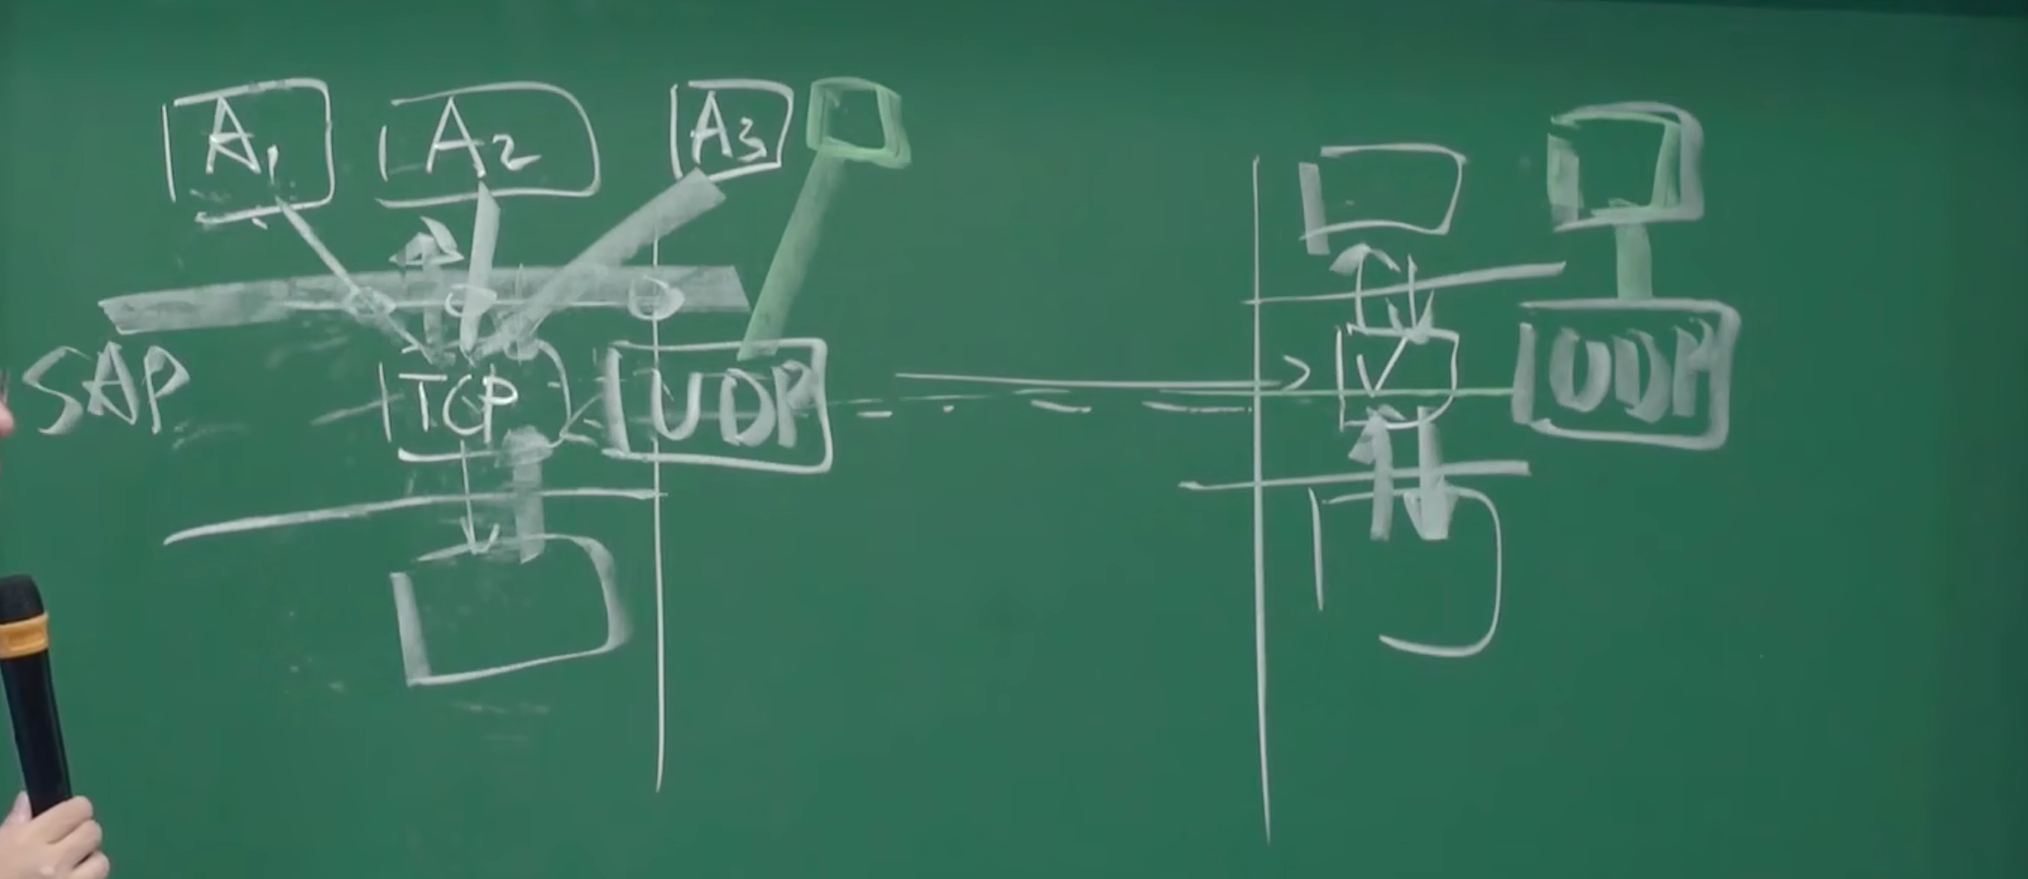 A1 A2 A3
SAP TCP UDP UDP